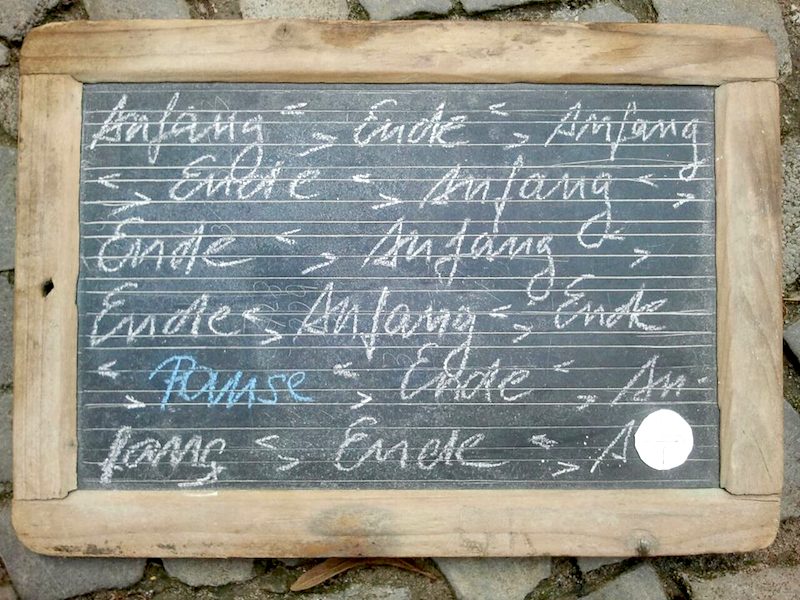 Anfang < > Ende < > Anfang
< > Ende < > Anfang < >
Ende < > Anfang < >
Ende < > Anfang < > Ende
< > Pause < > Ende < > An-
fang < > Ende < > A